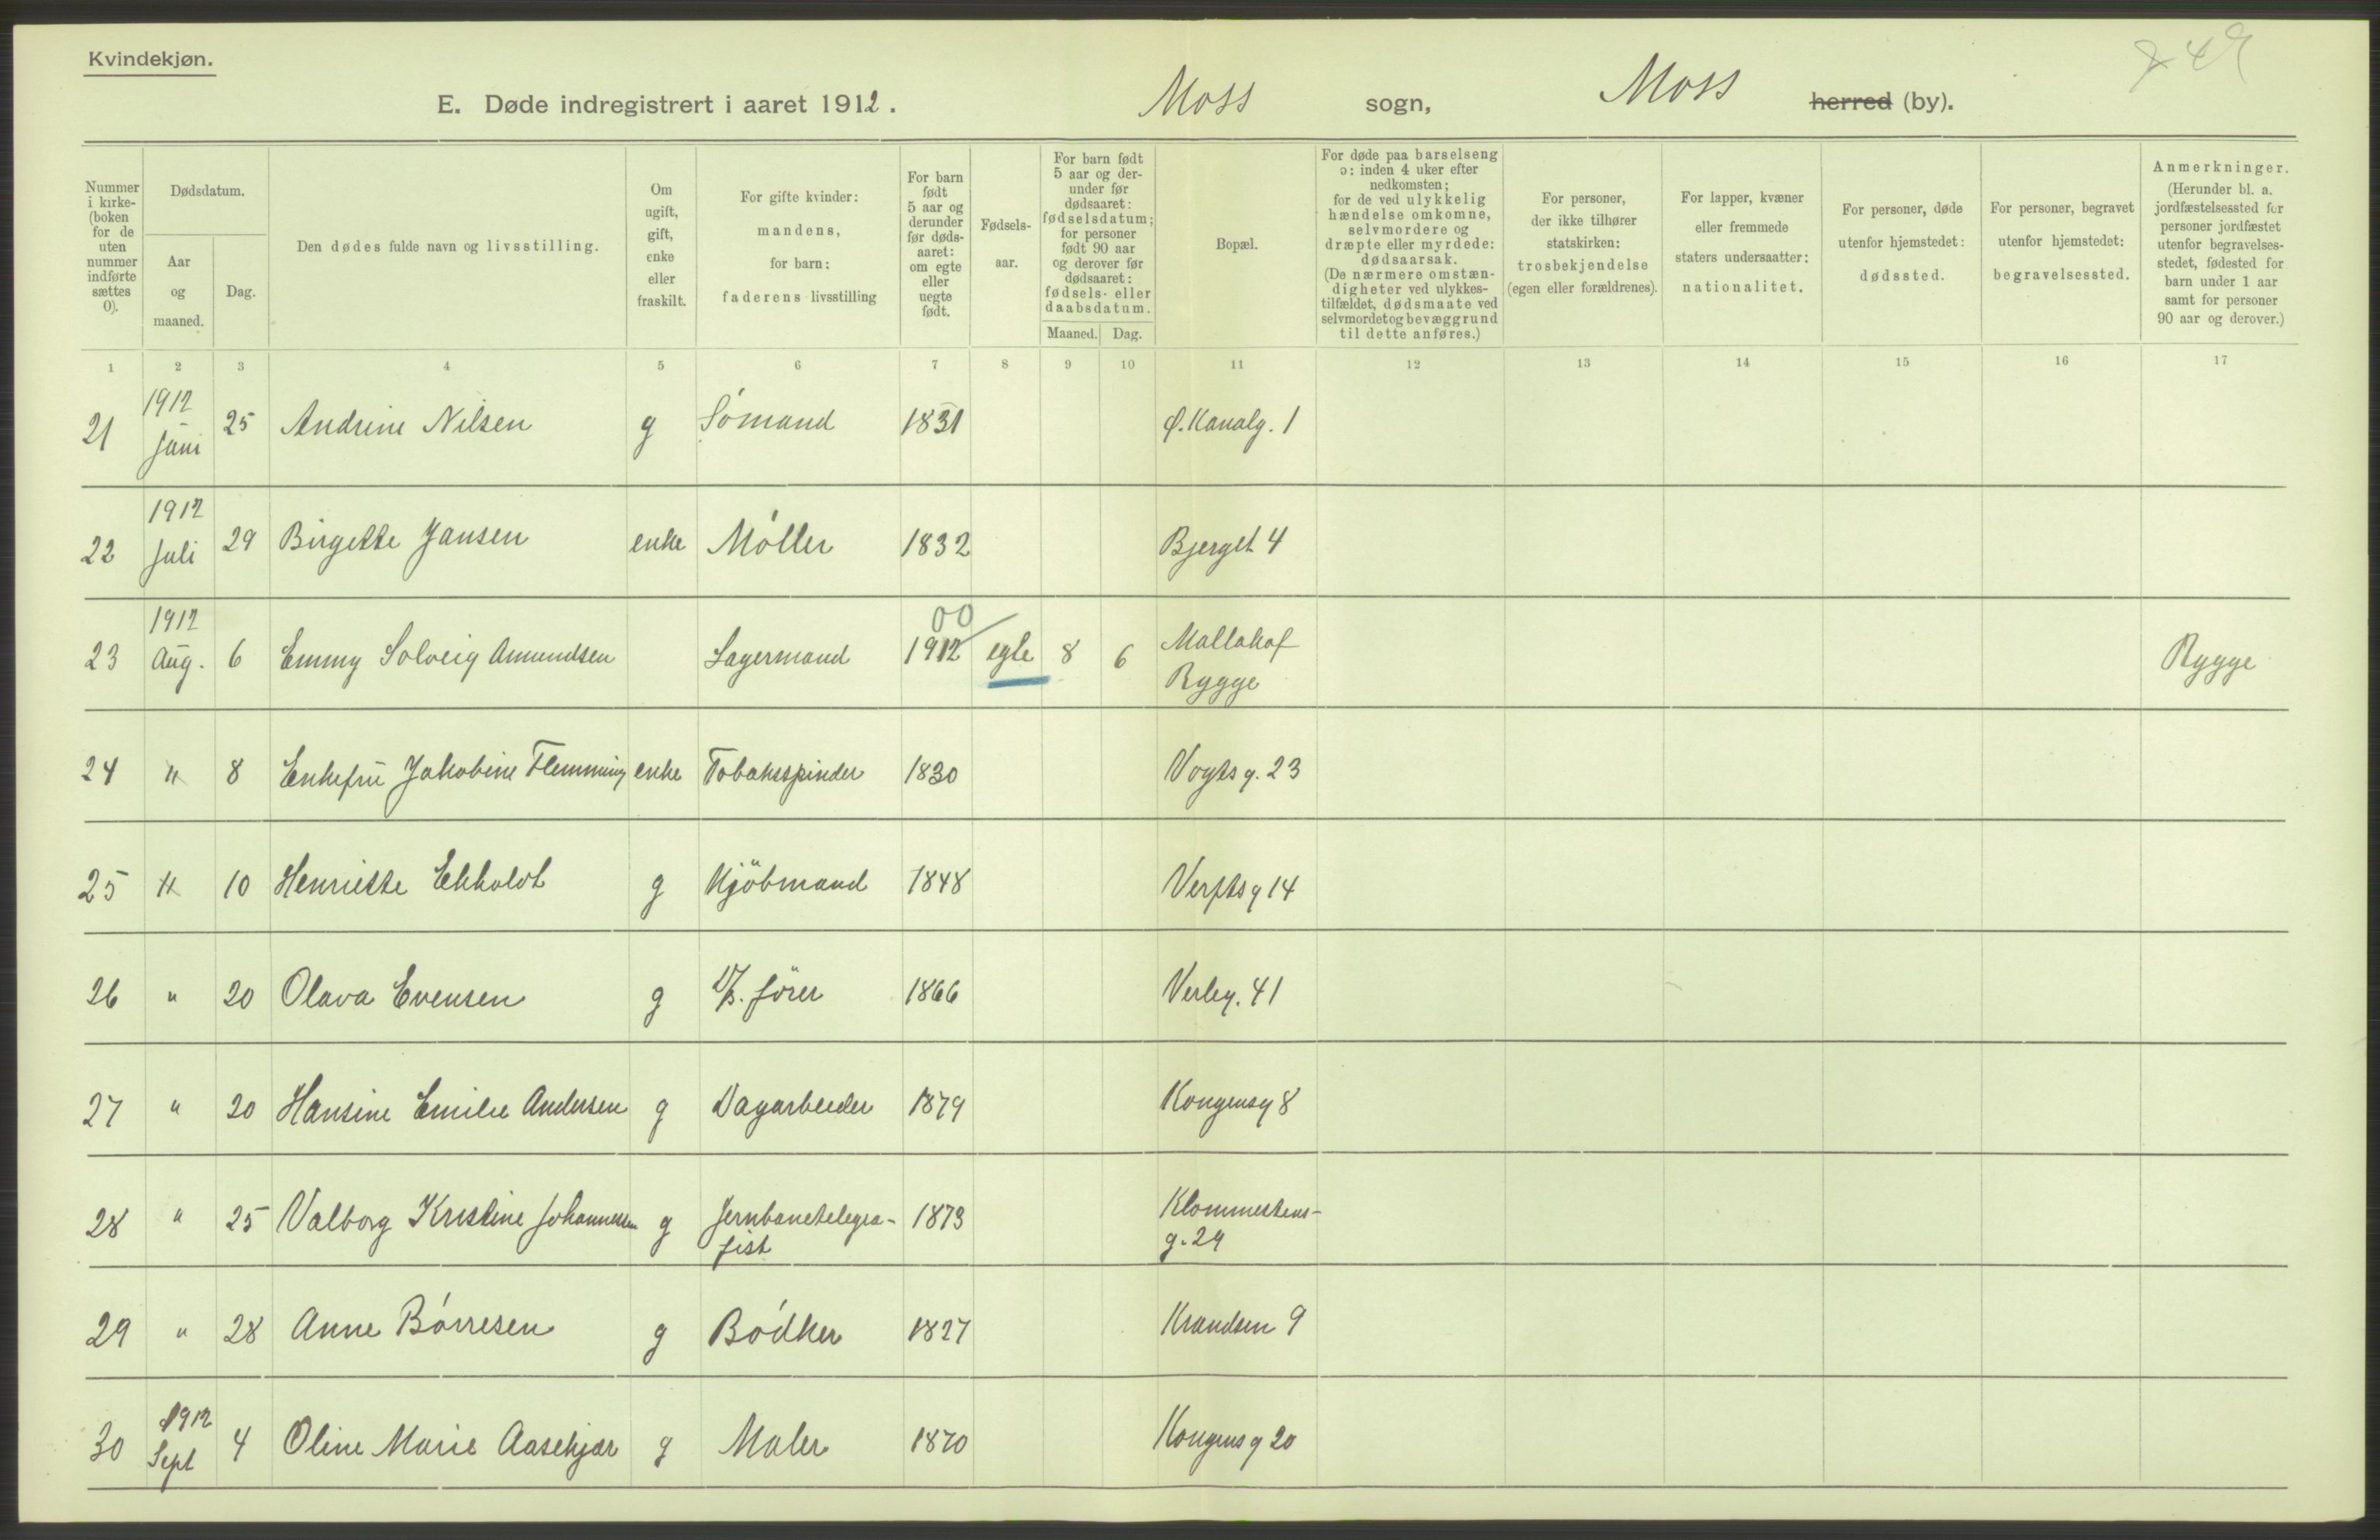 Kvindekjøn.
E. Døde indregistrert i aaret 1912. Moss sogn, Moss herred (by).
Nummer i kirke-(boken for de uten nummer indførte sættes 0).
Dødsdatum.
Aar og maaned.
Dag.
Den dødes fulde navn og livsstilling.
Om ugift, gift, enke eller fraskilt.
For gifte kvinder: mandens, for barn: faderens livsstilling
For barn født 5 aar og derunder før døds-aaret: om egte eller uegte født.
Fødsels-aar.
For barn født 5 aar og der-under før dødsaaret: fødselsdatum; for personer født 90 aar og derover før dødsaaret: fødsels- eller daabsdatum.
Maaned. Dag.
Bopæl.
For døde paa barselseng ɔ: inden 4 uker efter nedkomsten; for de ved ulykkelig hændelse omkomne, selvmordere og dræpte eller myrdede: dødsaarsak. (De nærmere omstæn-digheter ved ulykkes-tilfældet, dødsmaate ved selvmordet og bevæggrund til dette anføres.)
For personer, der ikke tilhører statskirken: trosbekjendelse (egen eller forældrenes).
For lapper, kvæner eller fremmede staters undersaatter: nationalitet.
For personer, døde utenfor hjemstedet: dødssted.
For personer, begravet utenfor hjemstedet: begravelsessted.
Anmerkninger. (Herunder bl. a. jordfæstelsessted for personer jordfæstet utenfor begravelses-stedet, fødested for barn under 1 aar samt for personer 90 aar og derover.)
1 2 3 4 5 6 7 8 9 10 11 12 13 14 15 16 17
21 1912 Juni 25 Andrine Nilsen g Sømand 1831 Ø. Kanalg. 1
22 1912 Juli 29 Birgette Jansen enke Møller 1832 Bjerget 4
23 1912 Aug. 6 Emmy Solveig Amundsen Lagermand 00 1912 egte 8 6 Mallahof Rygge Rygge
24 " 8 Enkefru Jakobine Flemming enke Tobaksspinder 1830 Vogtsg. 23
25 " 10 Henriette Ekholdt g Kjöbmand 1848 Verftsg 14
26 " 20 Olava Evensen g D/S. förer 1866 Verleg. 41
27 " 20 Hansine Emilie Andersen g Dagarbeider 1879 Kongensg 8
28 " 25 Valborg Kristine Johannesen g Jernbanetelegra-
fist 1873 Klommestens-
g. 29
29 " 28 Anne Børresen g Bødker 1827 Krandsen 9
30 1912 Sept 4 Oline Marie Aasekjær g Maler 1870 Kongensg 20